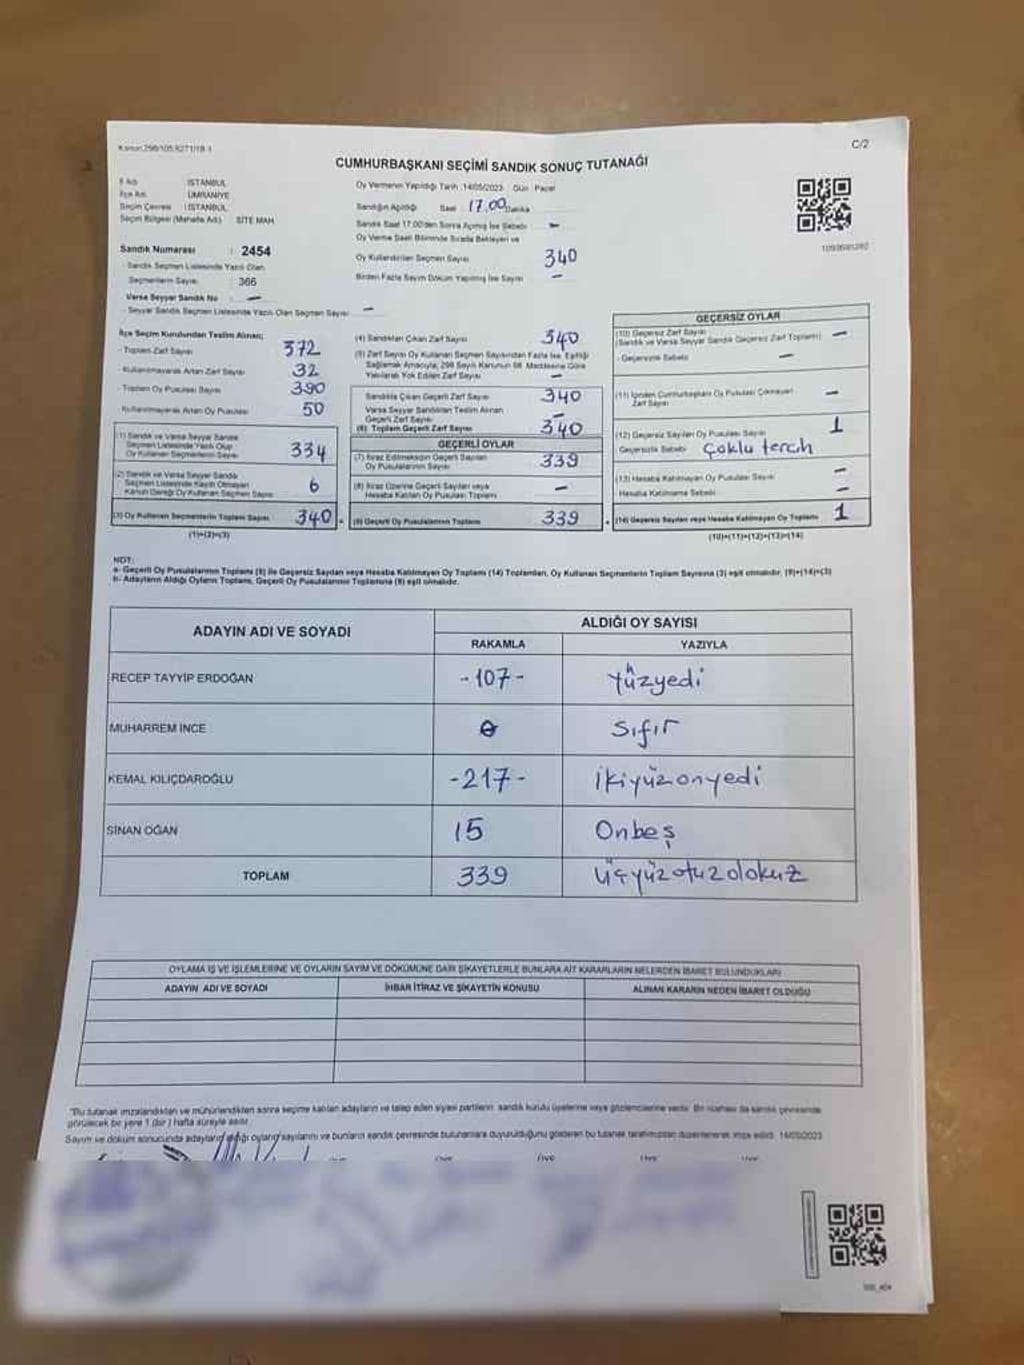 Kanun:298/105,6271/18-1
C/2
CUMHURBAŞKANI SEÇİMİ SANDIK SONUÇ TUTANAĞI
İl Adı : İSTANBUL
İlçe Adı : ÜMRANİYE
Seçim Çevresi : İSTANBUL
Seçim Bölgesi (Mahalle Adı) SİTE MAH
Sandık Numarası : 2454
Sandık Seçmen Listesinde Yazılı Olan
Seçmenlerin Sayısı : 366
Varsa Seyyar Sandık No : —
Seyyar Sandık Seçmen Listesinde Yazılı Olan Seçmen Sayısı —
Oy Vermenin Yapıldığı Tarih :14/05/2023 Gün : Pazar
Sandığın Açıldığı Saat 17.00 Dakika
Sandık Saat 17.00'den Sonra Açılmış İse Sebebi —
Oy Verme Saati Bitiminde Sırada Bekleyen ve
Oy Kullandırılan Seçmen Sayısı 340
Birden Fazla Sayım Döküm Yapılmış İse Sayısı —
İlçe Seçim Kurulundan Teslim Alınan;
- Toplam Zarf Sayısı 372
- Kullanılmayarak Artan Zarf Sayısı 32
- Toplam Oy Pusulası Sayısı 390
Kullanılmayarak Artan Oy Pusulası 50
(1) Sandık ve Varsa Seyyar Sandık
Seçmen Listesinde Yazılı Olup
Oy Kullanan Seçmenlerin Sayısı 334
(2) Sandık ve Varsa Seyyar Sandık
Seçmen Listesinde Kayıtlı Olmayan
Kanun Gereği Oy Kullanan Seçmen Sayısı 6
(3) Oy Kullanan Seçmenlerin Toplam Sayısı 340
(1)+(2)=(3)
(4) Sandıktan Çıkan Zarf Sayısı 340
(5) Zarf Sayısı Oy Kullanan Seçmen Sayısından Fazla İse, Eşitliği
Sağlamak Amacıyla; 298 Sayılı Kanunun 98. Maddesine Göre
Yakılarak Yok Edilen Zarf Sayısı —
Sandıkta Çıkan Geçerli Zarf Sayısı 340
Varsa Seyyar Sandıktan Teslim Alınan
Geçerli Zarf Sayısı —
(6) Toplam Geçerli Zarf Sayısı 340
GEÇERLİ OYLAR
(7) İtiraz Edilmeksizin Geçerli Sayılan
Oy Pusulalarının Sayısı 339
(8) İtiraz Üzerine Geçerli Sayılan veya
Hesaba Katılan Oy Pusulası Toplamı —
(9) Geçerli Oy Pusulalarının Toplamı 339
GEÇERSİZ OYLAR
(10) Geçersiz Zarf Sayısı
(Sandık ve Varsa Seyyar Sandık Geçersiz Zarf Toplamı) —
- Geçersizlik Sebebi —
(11) İçinden Cumhurbaşkanı Oy Pusulası Çıkmayan
Zarf Sayısı —
(12) Geçersiz Sayılan Oy Pusulası Sayısı 1
Geçersizlik Sebebi Çoklu tercih
(13) Hesaba Katılmayan Oy Pusulası Sayısı —
- Hesaba Katılmama Sebebi —
(14) Geçersiz Sayılan veya Hesaba Katılmayan Oy Toplamı 1
(10)+(11)+(12)+(13)=(14)
NOT:
a- Geçerli Oy Pusulalarının Toplamı (9) ile Geçersiz Sayılan veya Hesaba Katılmayan Oy Toplamı (14) Toplamları, Oy Kullanan Seçmenlerin Toplam Sayısına (3) eşit olmalıdır. (9)+(14)=(3)
b- Adayların Aldığı Oyların Toplamı, Geçerli Oy Pusulalarının Toplamına (9) eşit olmalıdır.
ADAYIN ADI VE SOYADI
ALDIĞI OY SAYISI
RAKAMLA YAZIYLA
RECEP TAYYİP ERDOĞAN -107- Yüzyedi
MUHARREM İNCE 0 Sıfır
KEMAL KILIÇDAROĞLU -217- İkiyüzonyedi
SİNAN OĞAN 15 Onbeş
TOPLAM 339 üçyüzotuzdokuz
OYLAMA İŞ VE İŞLEMLERİNE VE OYLARIN SAYIM VE DÖKÜMÜNE DAİR ŞİKAYETLERLE BUNLARA AİT KARARLARIN NELERDEN İBARET BULUNDUKLARI
ADAYIN ADI VE SOYADI İHBAR İTİRAZ VE ŞİKAYETİN KONUSU ALINAN KARARIN NEDEN İBARET OLDUĞU
"Bu tutanak imzalandıktan ve mühürlendikten sonra seçime katılan adayların ve talep eden siyasi partilerin sandık kurulu üyelerine veya gözlemcilerine verilir. Bir nüshası da sandık çevresinde
görülecek bir yere 1 (bir) hafta süreyle asılır.
Sayım ve döküm sonucunda adayların aldığı oyların sayılarını ve bunların sandık çevresinde bulunanlara duyurulduğunu gösteren bu tutanak tarafımızdan düzenlenerek imza edildi. 14/05/2023